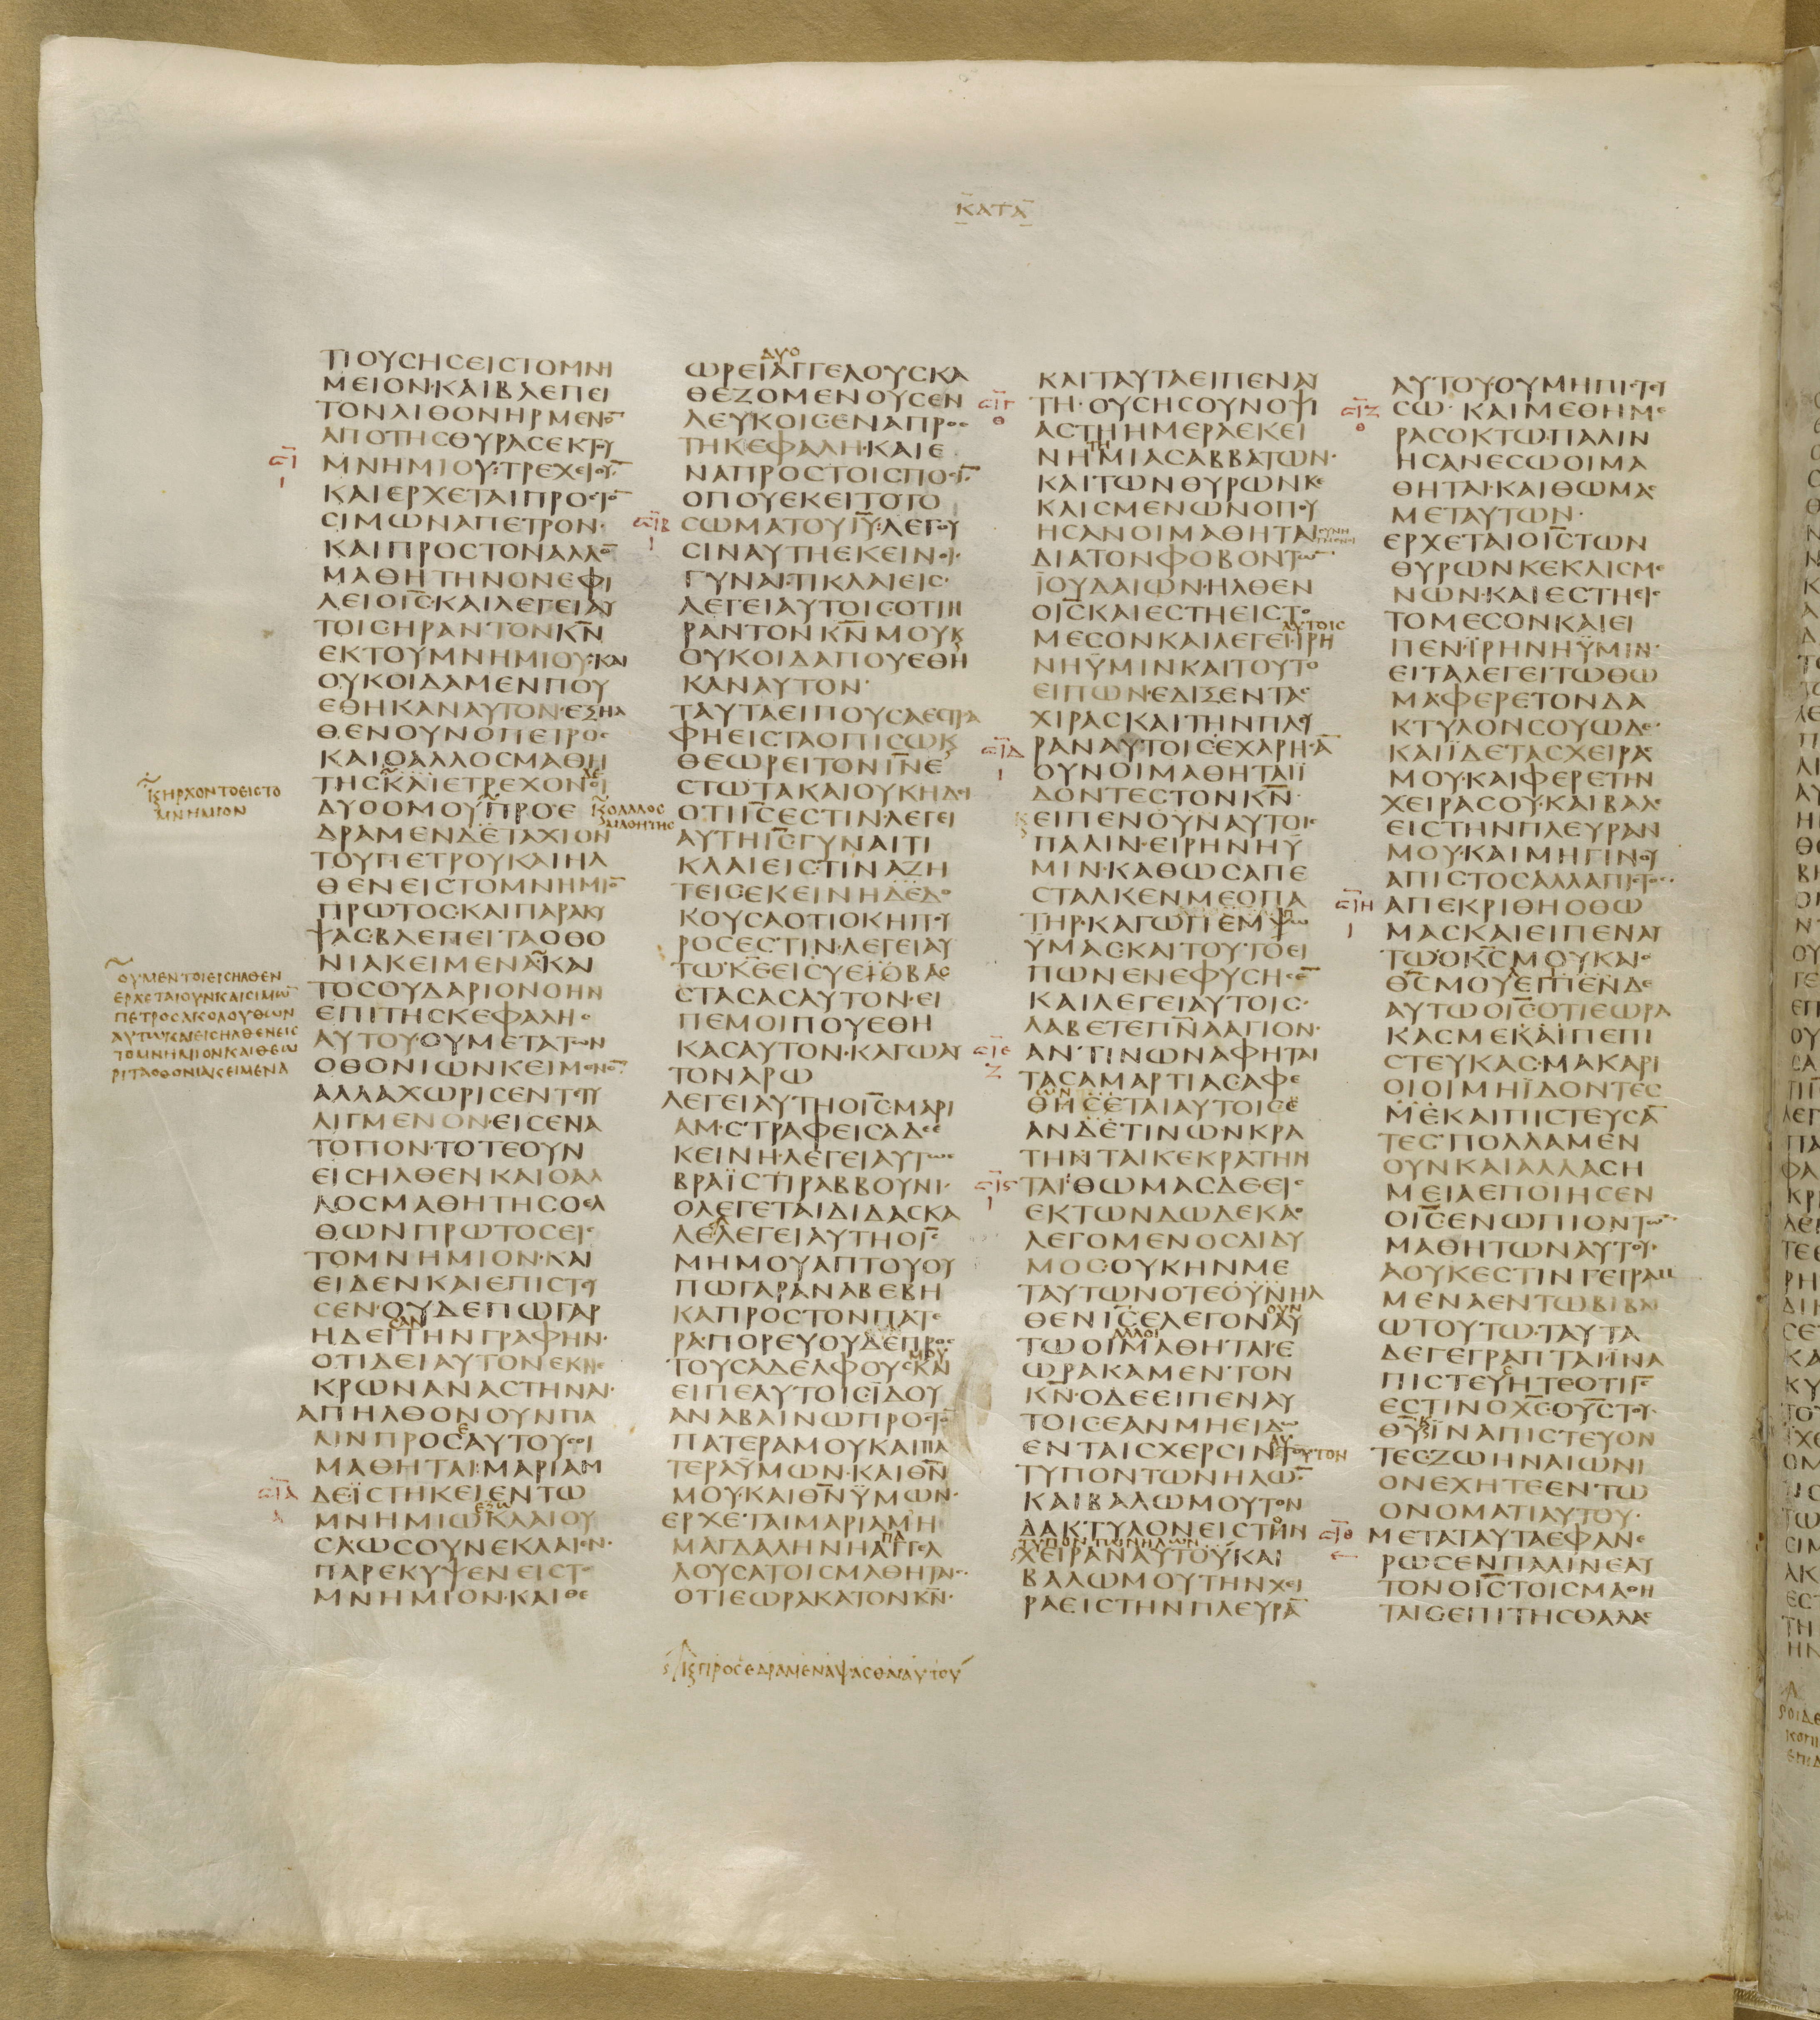 ΚΑΤΑ
ΤΙΟΥϹΗϹΕΙϹΤΟΜΝΗ
ΜΕΙΟΝ·ΚΑΙΒΛΕΠΕΙ
ΤΟΝΛΙΘΟΝΗΡΜΕΝΟ̅
ΑΠΟΤΗϹΘΥΡΑϹΕΚΤΟΥ
ΜΝΗΜΙΟΥ:ΤΡΕΧΕΙΟΥ̅
ΚΑΙΕΡΧΕΤΑΙΠΡΟϹΤΟ̅
ϹΙΜΩΝΑΠΕΤΡΟΝ·
ΚΑΙΠΡΟϹΤΟΝΑΛΛΟ̅
ΜΑΘΗΤΗΝΟΝΕΦΙ
ΛΕΙΟΙ̅Ϲ̅·ΚΑΙΛΕΓΕΙΑΥ
ΤΟΙϹ·ΗΡΑΝΤΟΝΚ̅Ν̅
ΕΚΤΟΥΜΝΗΜΙΟΥ·ΚΑΙ
ΟΥΚΟΙΔΑΜΕΝΠΟΥ
ΕΘΗΚΑΝΑΥΤΟΝ·ΕΞΗΛ
ΘΕΝΟΥΝΟΠΕΤΡΟϹ
ΚΑΙΟΑΛΛΟϹΜΑΘΗ
ΤΗϹΚΑΙΕΤΡΕΧΟΝΟΙ
ΔΥΟΟΜΟΥΠΡΟΕ
ΔΡΑΜΕΝΔΕΤΑΧΙΟΝ
ΤΟΥΠΕΤΡΟΥΚΑΙΗΛ
ΘΕΝΕΙϹΤΟΜΝΗΜΙΟ̅
ΠΡΩΤΟϹ·ΚΑΙΠΑΡΑΚΥ
ΨΑϹΒΛΕΠΕΙΤΑΟΘΟ
ΝΙΑΚΕΙΜΕΝΑΚΑΙ
ΤΟϹΟΥΔΑΡΙΟΝΟΗΝ
ΕΠΙΤΗϹΚΕΦΑΛΗϹ
ΑΥΤΟΥ·ΟΥΜΕΤΑΤΩΝ
ΟΘΟΝΙΩΝΚΕΙΜΕΝΟ̅
ΑΛΛΑΧΩΡΙϹΕΝΤΕΤΥ
ΛΙΓΜΕΝΟΝ·ΕΙϹΕΝΑ
ΤΟΠΟΝ·ΤΟΤΕΟΥΝ
ΕΙϹΗΛΘΕΝΚΑΙΟΑΛ
ΛΟϹΜΑΘΗΤΗϹΟΕΛ
ΘΩΝΠΡΩΤΟϹΕΙϹ
ΤΟΜΝΗΜΙΟΝ·ΚΑΙ
ΕΙΔΕΝΚΑΙΕΠΙϹΤΕΥ
ϹΕΝ·ΟΥΔΕΠΩΓΑΡ
ϹΑΝ
ΗΔΕΙΤΗΝΓΡΑΦΗΝ·
ΟΤΙΔΕΙΑΥΤΟΝΕΚΝΕ
ΚΡΩΝΑΝΑϹΤΗΝΑΙ·
ΑΠΗΛΘΟΝΟΥΝΠΑ
ΛΙΝΠΡΟϹΑΥΤΟΥϹΟΙ
ΜΑΘΗΤΑΙ:ΜΑΡΙΑΜ
ΔΕΪϹΤΗΚΕΙΕΝΤΩ
ΕΞΩ
ΜΝΗΜΙΩΚΛΑΙΟΥ
ϹΑ·ΩϹΟΥΝΕΚΛΑΙΕΝ·
ΠΑΡΕΚΥΨΕΝΕΙϹΤΟ
ΜΝΗΜΙΟΝ·ΚΑΙΘΕ
ΚΗΡΧΟΝΤΟΕΙϹΤΟ
ΜΝΗΜΙΟΝ
ΟΥΜΕΝΤΟΙΕΙϹΗΛΘΕΝ
ΕΡΧΕΤΑΙΟΥΝΚΑΙϹΙΜΩ̅
ΠΕΤΡΟϹΑΚΟΛΟΥΘΩΝ
ΑΥΤΩΚΑΙΕΙϹΗΛΘΕΝΕΙϹ
ΤΟΜΝΗΜΙΟΝΚΑΙΘΕΩ
ΡΙΤΑΟΘΟΝΙΑΚΕΙΜΕΝΑ
ΔΥΟ
ΩΡΕΙΑΓΓΕΛΟΥϹΚΑ
ΘΕΖΟΜΕΝΟΥϹΕΝ
ΛΕΥΚΟΙϹΕΝΑΠΡΟϹ
ΤΗΚΕΦΑΛΗ·ΚΑΙΕ
ΝΑΠΡΟϹΤΟΙϹΠΟϹΙ̅
ΟΠΟΥΕΚΕΙΤΟΤΟ
ϹΩΜΑΤΟΥΙ̅Υ̅:ΛΕΓΟΥ
ϹΙΝΑΥΤΗΕΚΕΙΝΟΙ·
ΓΥΝΑΙ·ΤΙΚΛΑΙΕΙϹ·
ΛΕΓΕΙΑΥΤΟΙϹΟΤΙΗ
ΡΑΝΤΟΝΚ̅Ν̅ΜΟΥΚ
ΟΥΚΟΙΔΑΠΟΥΕΘΗ
ΚΑΝΑΥΤΟΝ·
ΤΑΥΤΑΕΙΠΟΥϹΑΕϹΤΡΑ
ΦΗΕΙϹΤΑΟΠΙϹΩΚ
ΘΕΩΡΕΙΤΟΝΙ̅Ν̅Ε
ϹΤΩΤΑΚΑΙΟΥΚΗΔΙ
ΟΤΙΙ̅Ϲ̅ΕϹΤΙΝ·ΛΕΓΕΙ
ΑΥΤΗΙ̅Ϲ̅·ΓΥΝΑΙΤΙ
ΚΛΑΙΕΙϹ·ΤΙΝΑΖΗ
ΤΕΙϹ·ΕΚΕΙΝΗΔΕΔΟ
ΚΟΥϹΑΟΤΙΟΚΗΠΟΥ
ΡΟϹΕϹΤΙΝ·ΛΕΓΕΙΑΥ
ΤΩΚ̅Ε̅ΕΙϹΥΕΙΟΒΑϹ
ϹΤΑϹΑϹΑΥΤΟΝ·ΕΙ
ΠΕΜΟΙΠΟΥΕΘΗ
ΚΑϹΑΥΤΟΝ·ΚΑΓΩΑΥ
ΤΟΝΑΡΩ
ΛΕΓΕΙΑΥΤΗΟΙ̅Ϲ̅·ΜΑΡΙ
ΑΜ·ϹΤΡΑΦΕΙϹΑΔΕΕ
ΚΕΙΝΗ·ΛΕΓΕΙΑΥΤΩΕ
ΒΡΑΪϹΤΙΡΑΒΒΟΥΝΙ·
ΟΛΕΓΕΤΑΙΔΙΔΑϹΚΑ
ΛΕΛΕΓΕΙΑΥΤΗΟΙ̅Ϲ̅
ΜΗΜΟΥΑΠΤΟΥΟΥ
ΠΩΓΑΡΑΝΑΒΕΒΗ
ΚΑΠΡΟϹΤΟΝΠΑΤΕ
ΡΑ·ΠΟΡΕΥΟΥΔΕΠΡΟϹ
ΜΟΥ
ΤΟΥϹΑΔΕΛΦΟΥϹΚΑΙ
ΕΙΠΕΑΥΤΟΙϹΪΔΟΥ
ΑΝΑΒΑΙΝΩΠΡΟϹΤΟ̅
ΠΑΤΕΡΑΜΟΥΚΑΙΠΑ
ΤΕΡΑΫΜΩΝ·ΚΑΙΘ̅Ν̅
ΜΟΥ·ΚΑΙΘ̅Ν̅ΫΜΩΝ·
ΕΡΧΕΤΑΙΜΑΡΙΑΜΗ
ΜΑΓΔΑΛΗΝΗΑΓΓΕΛ
ΛΟΥϹΑΤΟΙϹΜΑΘΗΤΑΙϹ·
ΟΤΙΕΩΡΑΚΑΤΟΝΚ̅Ν̅·
ΚΑΙΠΡΟϹΕΔΡΑΜΕΝΑΨΑϹΘΑΙΑΥΤΟΥ
ΚΑΙΤΑΥΤΑΕΙΠΕΝΑΥ
ΤΗ·ΟΥϹΗϹΟΥΝΟΨΙ
ΑϹΤΗΗΜΕΡΑΕΚΕΙ
ΤΗ
ΝΗΜΙΑϹΑΒΒΑΤΩΝ·
ΚΑΙΤΩΝΘΥΡΩΝΚΕ
ΚΛΙϹΜΕΝΩΝΟΠΟΥ
ΗϹΑΝΟΙΜΑΘΗΤΑΙ
ΔΙΑΤΟΝΦΟΒΟΝΤΩ̅
ΪΟΥΔΑΙΩΝ·ΗΛΘΕΝ
ΟΙ̅Ϲ̅ΚΑΙΕϹΤΗΕΙϹΤΟ
ΑΥΤΟΙϹ
ΜΕϹΟΝΚΑΙΛΕΓΕΙ·ΙΡΗ
ΝΗΫΜΙΝΚΑΙΤΟΥΤΟ
ΕΙΠΩΝ·ΕΔΙΞΕΝΤΑϹ
ΧΙΡΑϹΚΑΙΤΗΝΠΛΕΥ
ΡΑΝΑΥΤΟΙϹ·ΕΧΑΡΗϹΑ̅
ΟΥΝΟΙΜΑΘΗΤΑΙΪ
ΔΟΝΤΕϹΤΟΝΚ̅Ν̅·
ΕΙΠΕΝΟΥΝΑΥΤΟΙϹ
ΠΑΛΙΝ·ΕΙΡΗΝΗΫ
ΜΙΝ·ΚΑΘΩϹΑΠΕ
ϹΤΑΛΚΕΝΜΕΟΠΑ
ΤΗΡ·ΚΑΓΩΠΕΜΨΩ
ΫΜΑϹ·ΚΑΙΤΟΥΤΟΕΙ
ΠΩΝΕΝΕΦΥϹΗϹΕ̅
ΚΑΙΛΕΓΕΙΑΥΤΟΙϹ·
ΛΑΒΕΤΕΠ̅Ν̅Α̅ΑΓΙΟΝ·
ΑΝΤΙΝΩΝΑΦΗΤΑΙ
ΤΑϹΑΜΑΡΤΙΑϹ·ΑΦΕ
ΘΗϹΕΤΑΙΑΥΤΟΙϹΕ
ΑΝΔΕΤΙΝΩΝΚΡΑ
ΤΗΝΤΑΙΚΕΚΡΑΤΗΝ
ΤΑΙ:ΘΩΜΑϹΔΕ·ΕΙϹ
ΕΚΤΩΝΔΩΔΕΚΑΟ
ΛΕΓΟΜΕΝΟϹΔΙΔΥ
ΜΟϹ·ΟΥΚΗΝΜΕ
ΤΑΥΤΩΝΟΤΕΟΥΝΗΛ
ΟΥΝ
ΘΕΝΙ̅Ϲ̅ΕΛΕΓΟΝΑΥ
ΑΛΛΟΙ
ΤΩΟΙΜΑΘΗΤΑΙ·Ε
ΩΡΑΚΑΜΕΝΤΟΝ
Κ̅Ν̅·ΟΔΕΕΙΠΕΝΑΥ
ΤΟΙϹΕΑΝΜΗΕΙΔΩ
ΕΝΤΑΙϹΧΕΡϹΙΝΤΟΥΤΟΝ
ΤΥΠΟΝΤΩΝΗΛΩ̅
ΚΑΙΒΑΛΩΜΟΥΤΟΝ
ΔΑΚΤΥΛΟΝΕΙϹΤΗΝ
ΤΥΠΟΝΤΩΝΗΛΩΝ
ΧΕΙΡΑΝΑΥΤΟΥΚΑΙ
ΒΑΛΩΜΟΥΤΗΝΧΕΙ
ΡΑΕΙϹΤΗΝΠΛΕΥΡΑ̅
ΑΥΤΟΥ·ΟΥΜΗΠΙϹΤΕΥ
ϹΩ·ΚΑΙΜΕΘΗΜΕ
ΡΑϹΟΚΤΩ·ΠΑΛΙΝ
ΗϹΑΝΕϹΩΟΙΜΑ
ΘΗΤΑΙ·ΚΑΙΘΩΜΑϹ
ΜΕΤΑΥΤΩΝ·
ΕΡΧΕΤΑΙΟΙ̅Ϲ̅ΤΩΝ
ΘΥΡΩΝΚΕΚΛΙϹΜΕ
ΝΩΝ·ΚΑΙΕϹΤΗΕΙϹ
ΤΟΜΕϹΟΝΚΑΙΕΙ
ΠΕΝ·ΪΡΗΝΗΫΜΙΝ·
ΕΙΤΑΛΕΓΕΙΤΩΘΩ
ΜΑ·ΦΕΡΕΤΟΝΔΑ
ΚΤΥΛΟΝϹΟΥΩΔΕ·
ΚΑΙΪΔΕΤΑϹΧΕΙΡΑϹ
ΜΟΥ·ΚΑΙΦΕΡΕΤΗΝ
ΧΕΙΡΑϹΟΥ·ΚΑΙΒΑΛΕ
ΕΙϹΤΗΝΠΛΕΥΡΑΝ
ΜΟΥ·ΚΑΙΜΗΓΙΝΟΥ
ΑΠΙϹΤΟϹΑΛΛΑΠΙϹΤΟϹ·
ΑΠΕΚΡΙΘΗΟΘΩ
ΜΑϹΚΑΙΕΙΠΕΝΑΥ
ΤΩ·ΟΚ̅Ϲ̅ΜΟΥΚΑΙΟ
Θ̅Ϲ̅ΜΟΥΕΙΠΕΝΔΕ
ΑΥΤΩΟΙ̅Ϲ̅ΟΤΙΕΩΡΑ
ΚΑϹΜΕΚΑΙΠΕΠΙ
ϹΤΕΥΚΑϹ·ΜΑΚΑΡΙ
ΟΙΟΙΜΗΪΔΟΝΤΕϹ
ΜΕΚΑΙΠΙϹΤΕΥϹΑ̅
ΤΕϹ·ΠΟΛΛΑΜΕΝ
ΟΥΝΚΑΙΑΛΛΑϹΗ
ΜΕΙΑΕΠΟΙΗϹΕΝ
ΟΙ̅Ϲ̅ΕΝΩΠΙΟΝΤΩ̅
ΜΑΘΗΤΩΝΑΥΤΟΥ·
ΑΟΥΚΕϹΤΙΝΓΕΓΡΑΜ
ΜΕΝΑΕΝΤΩΒΙΒΛΙ
ΩΤΟΥΤΩ·ΤΑΥΤΑ
ΔΕΓΕΓΡΑΠΤΑΙ·ΪΝΑ
ΠΙϹΤΕΥΗΤΕΟΤΙΙ̅Ϲ̅
ΕϹΤΙΝΟΧ̅Ϲ̅ΟΥ̅Ϲ̅ΤΟΥ
Θ̅Υ̅ΪΝΑΠΙϹΤΕΥΟΝ
ΤΕϹ·ΖΩΗΝΑΙΩΝΙ
ΟΝΕΧΗΤΕΕΝΤΩ
ΟΝΟΜΑΤΙΑΥΤΟΥ·
ΜΕΤΑΤΑΥΤΑΕΦΑΝΕ
ΡΩϹΕΝΠΑΛΙΝΕΑΥ
ΤΟΝΟΙ̅Ϲ̅ΤΟΙϹΜΑΘΗ
ΤΑΙϹ·ΕΠΙΤΗϹΘΑΛΑϹ